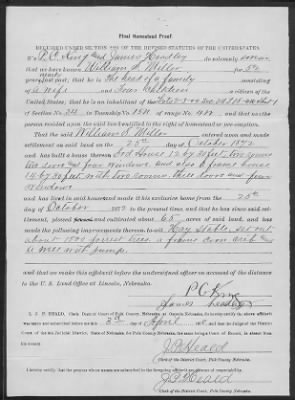 Final Homestead Proof.
REQUIRED UNDER SECTION 2291 OF THE REVISED STATUTES OF THE UNITED STATES
We P. C. King and James Hensley do solemnly swear
that we have known William S. Miller for five
years last past; that he is the head of a family consisting
of a wife and Four Children a citizen of the
United States; that he is an inhabitant of the
of Section No. 34 in Township 15 N of range No. and that no other
person resided on the said land entitled to the right of homestead or pre-emption.
That the said William S. Miller entered upon and made
settlement on said land on the 25th day of October 1872
and has built a house thereon Sod House 12 by 20 feet two rooms
two doors and four windows and also a frame house
14 by 20 feet with two rooms, three doors and four
windows
and has lived in said house and made it his exclusive home from the 25th
day of October 1872 to the present time, and that he has since said
settlement, plowed and cultivated about 65 acres of said land, and has
made the following improvements thereon to-wit: Hay Stable, set out
about 1500 forrest trees, a frame corn crib and
a well with pump.
and that we make this affidavit before the undersigned officer on account of the distance
to the U. S. Land Office at Lincoln, Nebraska.
P C King
James Hensley
I, J P. HEALD, Clerk District Court of Polk County, Nebraska, at Osceola, Nebraska, do hereby certify the above affidavit
was taken and subscribed before me this 3rd day of April
J P Heald
Clerk of the District Court, Polk County, Nebraska.
I hereby certify that the persons whose names are subscribed to the foregoing affidavit are persons of respectability.
J P Heald
Clerk of the District Court, Polk County Nebraska.